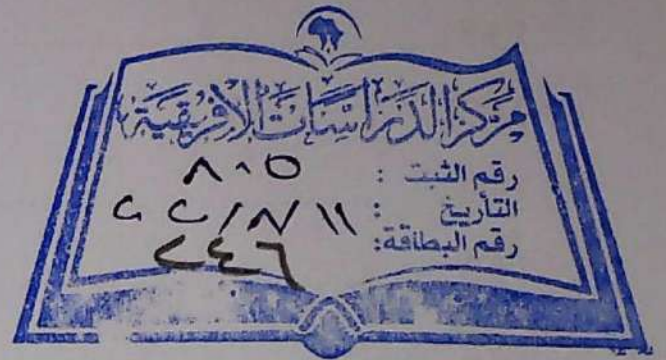 مركز الدراسات الإفريقية
رقم الثبت : ٨٠٥
التأريخ : ١١/٨/٢٢
رقم البطاقة: ٢٤٦